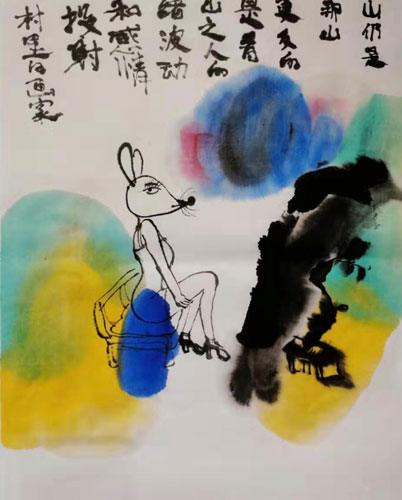 山仍是
那山
更多的
是看
山之人的
绪波动
和感情
投射
村里的画家